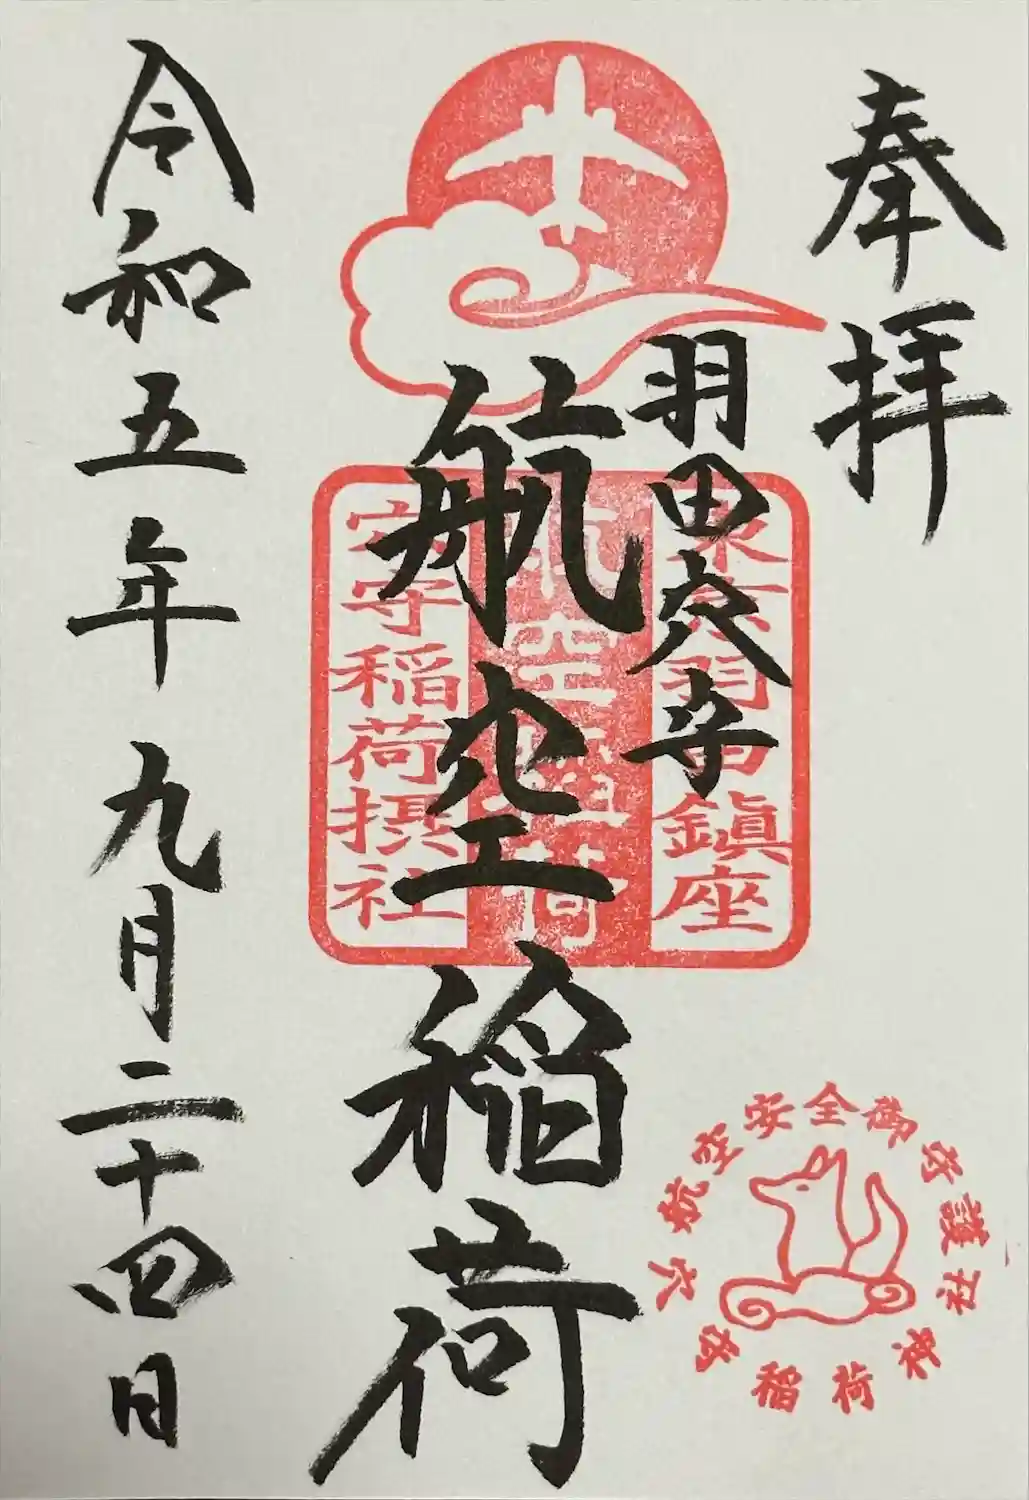 奉拝
羽田穴守
航空稲荷
令和五年九月二十四日
東京羽田鎮座
航空稲荷
穴守稲荷摂社
安全御守護
稲荷